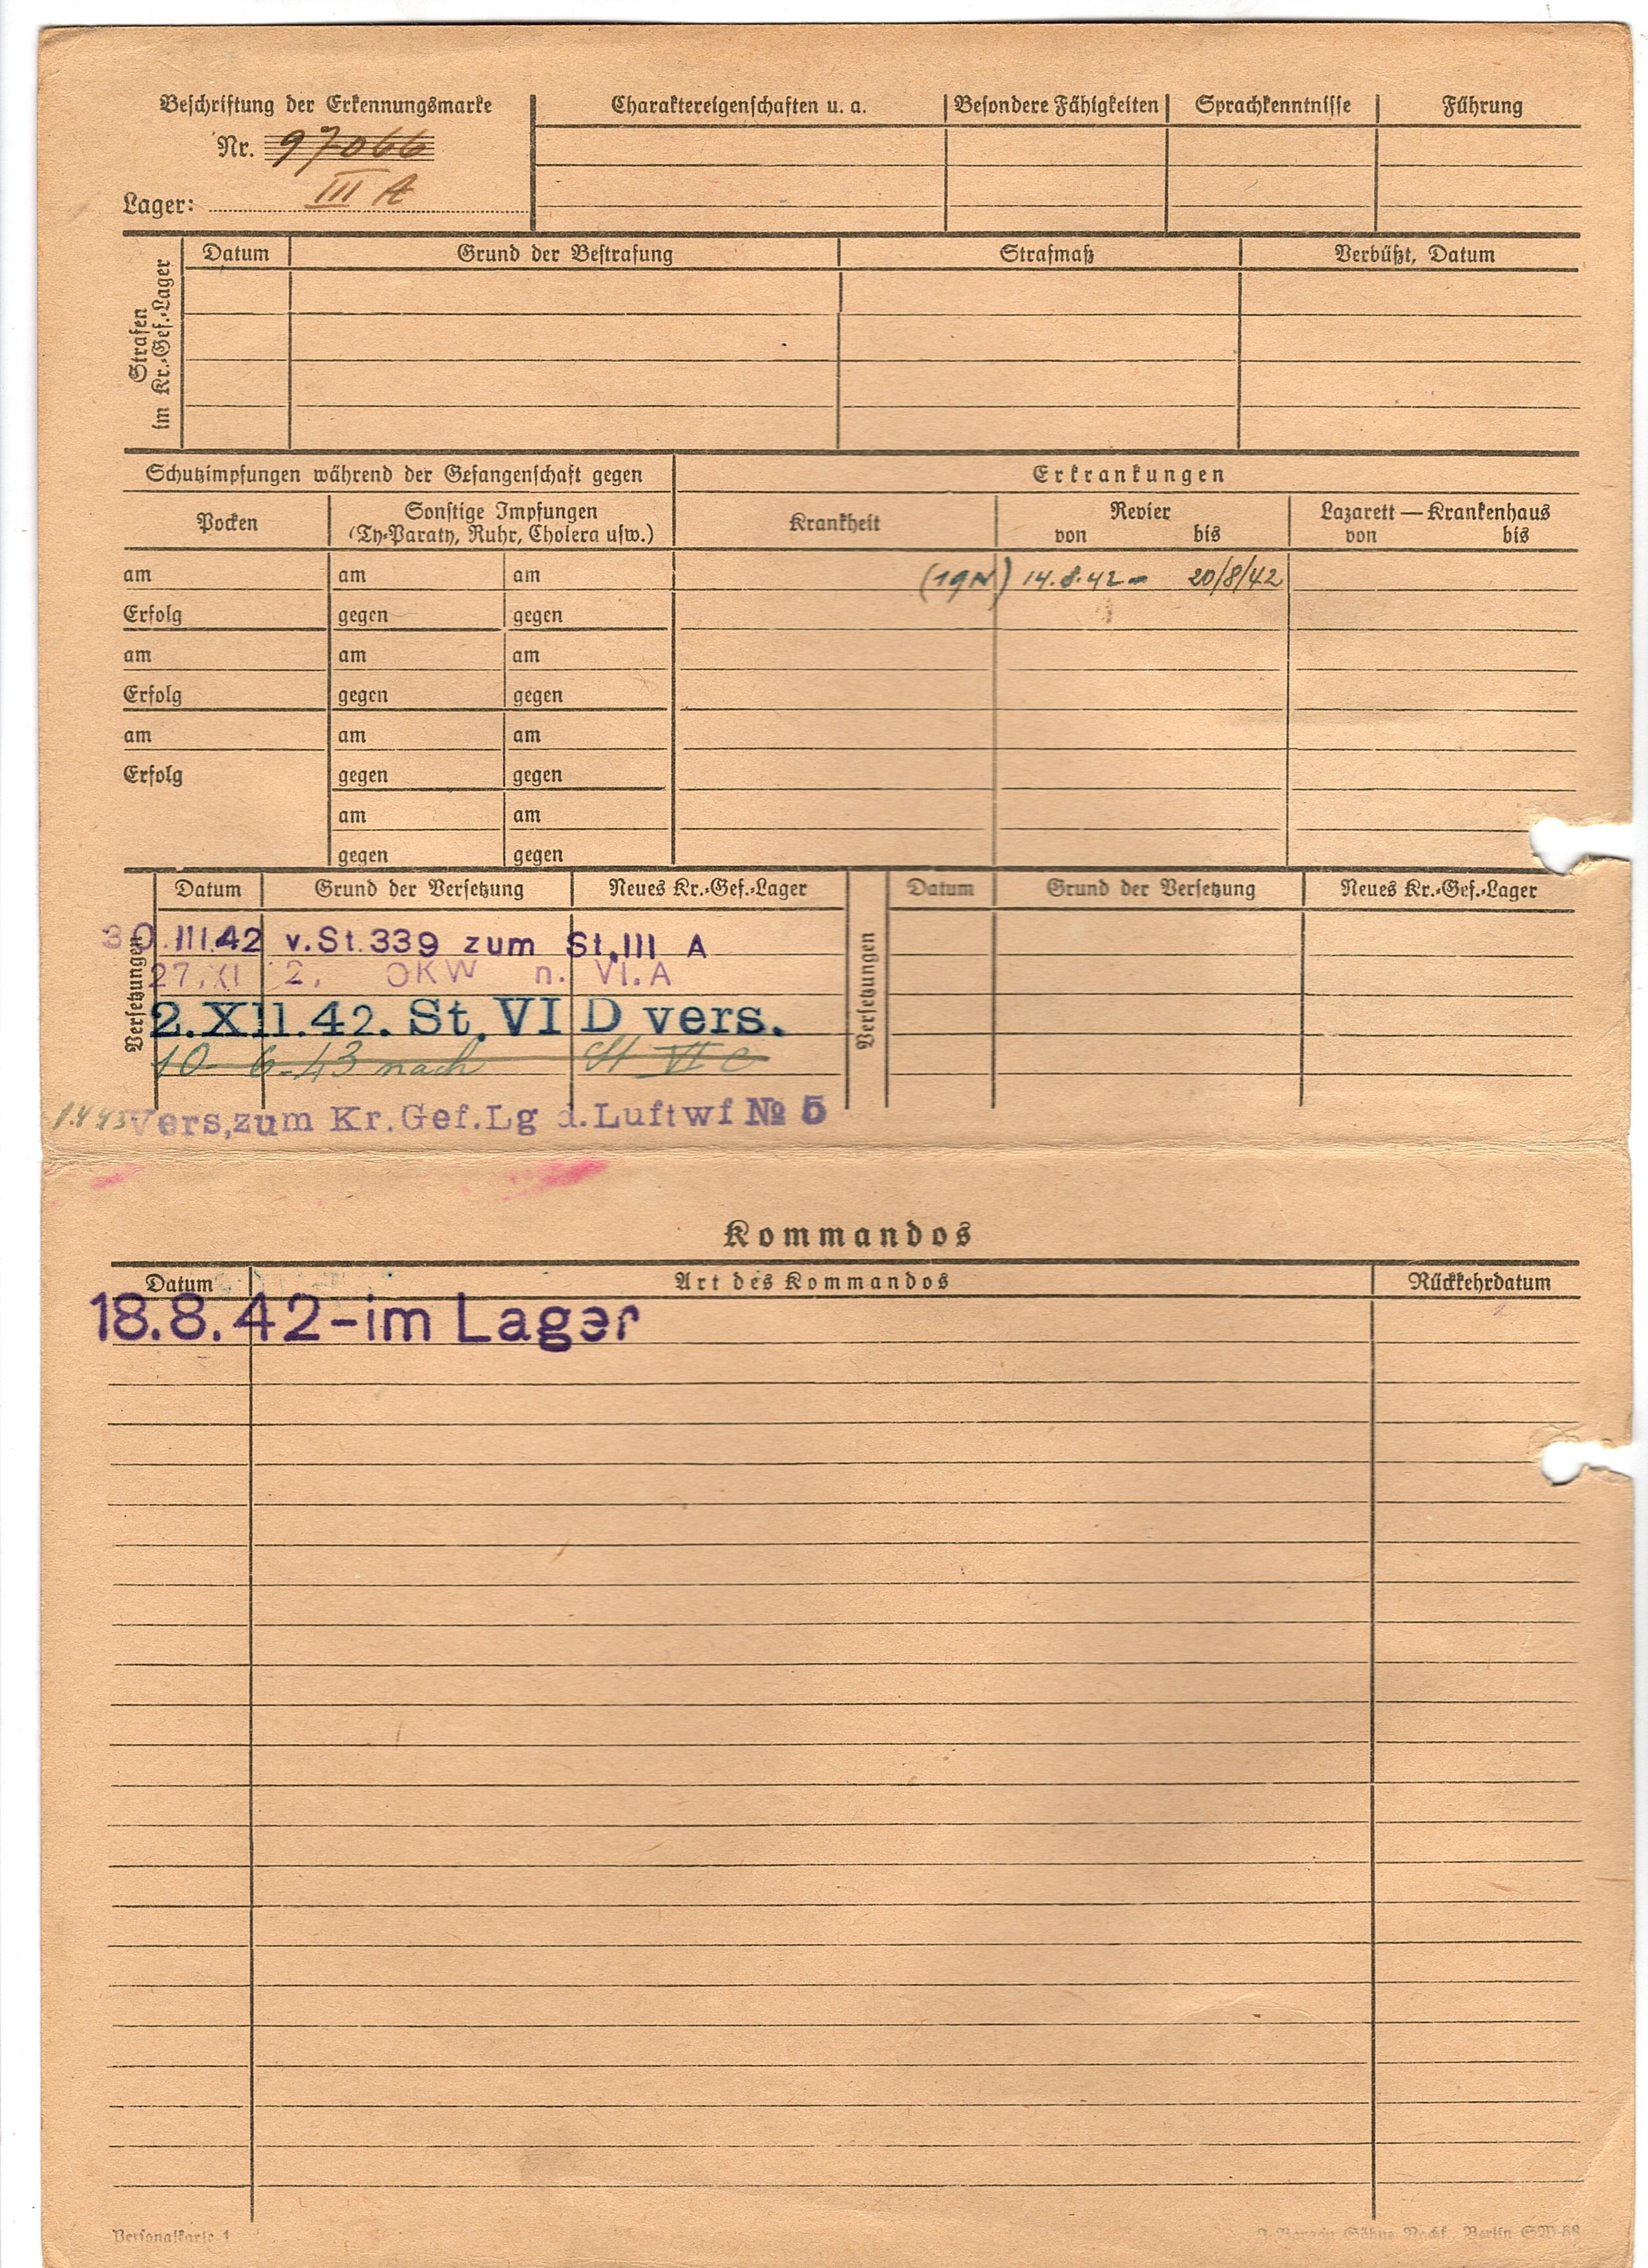 Beschriftung der Erkennungsmarke
Nr. 97066
Lager: III A
Charaktereigenschaften u. a. Besondere Fähigkeiten Sprachkenntnisse Führung
Strafen im Kr.-Gef.-Lager
Datum Grund der Bestrafung Strafmaß Verbüßt, Datum
Schutzimpfungen während der Gefangenschaft gegen
Pocken Sonstige Impfungen
(Ty-Paraty, Ruhr, Cholera usw.)
am am am
Erfolg gegen gegen
am am am
Erfolg gegen gegen
am am am
Erfolg gegen gegen
am am
gegen gegen
Erkrankungen
Krankheit Revier Lazarett — Krankenhaus
von bis von bis
14.8.42 - 20/8/42
Versetzungen
Datum Grund der Versetzung Neues Kr.-Gef.-Lager
30.III.42 v.St.339 zum St.III A
27.XI 2. OKW n. VI.A
2.XII.42. St.VI D vers.
10-6-43 nach St VI C
Vers,zum Kr.Gef.Lg d.Luftwf № 5
Versetzungen
Datum Grund der Versetzung Neues Kr.-Gef.-Lager
Kommandos
Datum Art des Kommandos Rückkehrdatum
18.8.42-im Lager
Personalkarte 1
Berlin SW 68